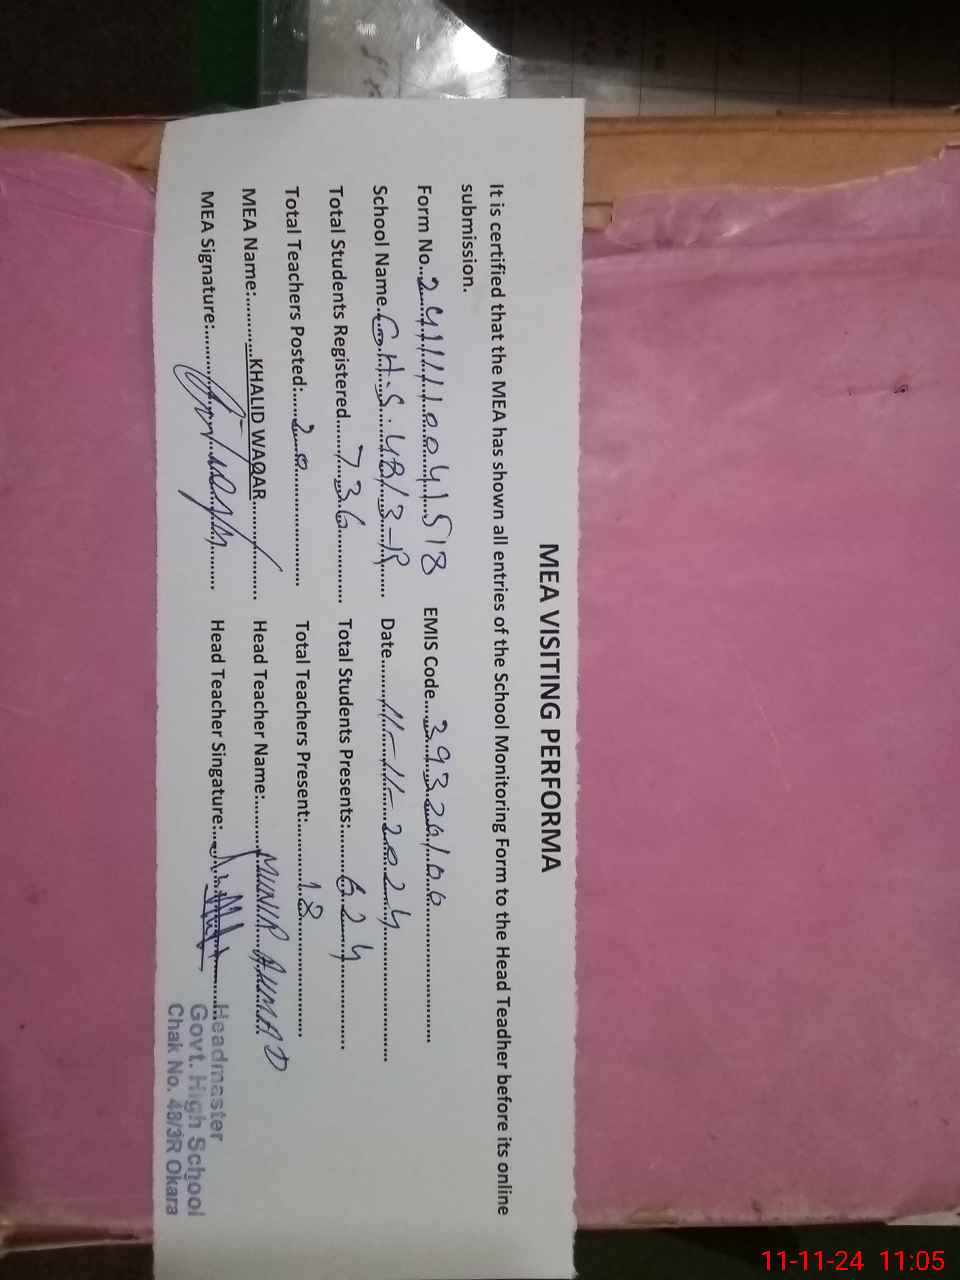 MEA VISITING PERFORMA
It is certified that the MEA has shown all entries of the School Monitoring Form to the Head Teadher before its online
submission.
Form No..2411110041518 EMIS Code.....39320100
School Name.G.H.S. 48/3-R Date 11-11-2024
Total Students Registered 736 Total Students Presents: 624
Total Teachers Posted: 20 Total Teachers Present: 18
MEA Name: KHALID WAQAR Head Teacher Name: MUNIR AHMAD
MEA Signature: Head Teacher Singature:
Headmaster
Govt. High School
Chak No. 48/3R Okara
11-11-24 11:05